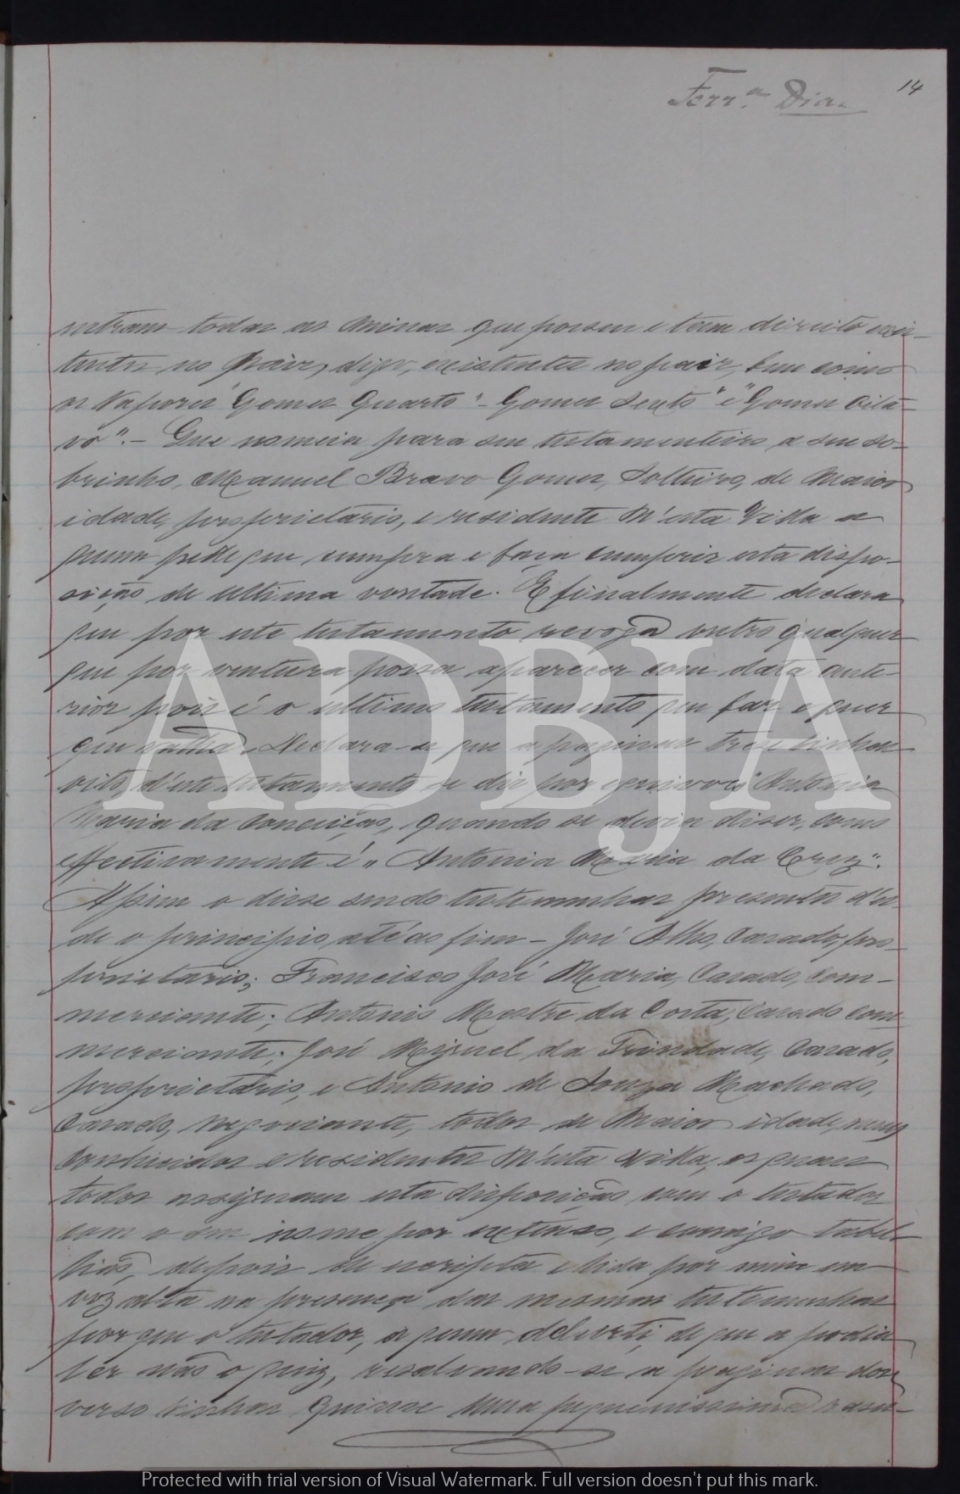 14
Ferr.ª Dias
entram todas as minas que possue e tem direito exis-
tentes no Paiz, digo, existentes no paiz, bem como
os Vapores "Gomes Quarto" - Gomes Sexto" e "Gomes Oita-
vo". - Que nomeia para seu testamenteiro, a seu so-
brinho, Manuel Bravo Gomes, Solteiro, de Maior
idade, proprietario, e residente n'esta Villa a
quem pede que cumpra e faça cumprir esta dispo-
sição de ultima vontade. E finalmente declara
que por este testamento revoga outro qualquer
que por ventura possa aparecer com data ante-
rior pois é o ultimo testamento que faz e quer
que valha. Declara-se que a paginas tres linhas
oito, d'este testamento se diz por equivoco, "Antonia
Maria da Conceição, quando se devia diser, como
effectivamente é "Antonia Maria da Cruz".
Assim o disse sendo testemunhas presentes des-
de o principio até ao fim - José Alho, Casado, pro-
prietario; Francisco José Maria, Casado, com-
merciante; Antonio Mestre da Costa, Casado com-
merciante; José Miguel da Trindade, Casado,
proprietario, e Antonio de Souza Machado,
Casado, Negociante, todos de Maior idade, meus
conhecidos e residentes N'esta Villa, os quaes
todos assignam esta disposição com o testador
com o seu nome por extenso, e comigo tabel-
lião, depois de escripta e lida por mim em
voz alta na presença das mesmas testemunhas
por que o testador, a quem adverti, de que a podia
ler não o quiz, resalvando-se a paginas dois
verso linhas quinse uma pequenissima rasu-
ADBJA
Protected with trial version of Visual Watermark. Full version doesn't put this mark.